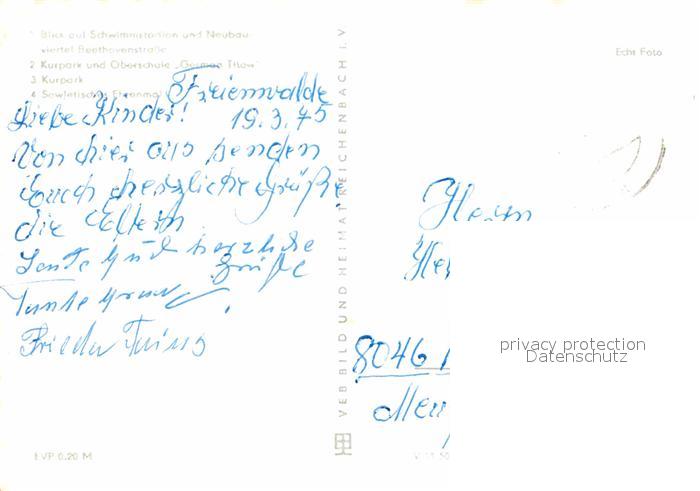 1 Blick auf Schwimmstadion und Neubau-
viertel Beethovenstraße
2 Kurpark und Oberschule „German Titow"
3 Kurpark
4 Sowjetisches Ehrenmal
Freienwalde
Liebe Kinder! 19.3.75
Von hier aus senden
Euch herzliche Grüße
die Eltern
und herzliche
Grüße
Tante
Frieda
VEB BILD UND HEIMAT REICHENBACH I.V
Echt Foto
Herrn
8046
EVP 0,20 M
privacy protection
Datenschutz